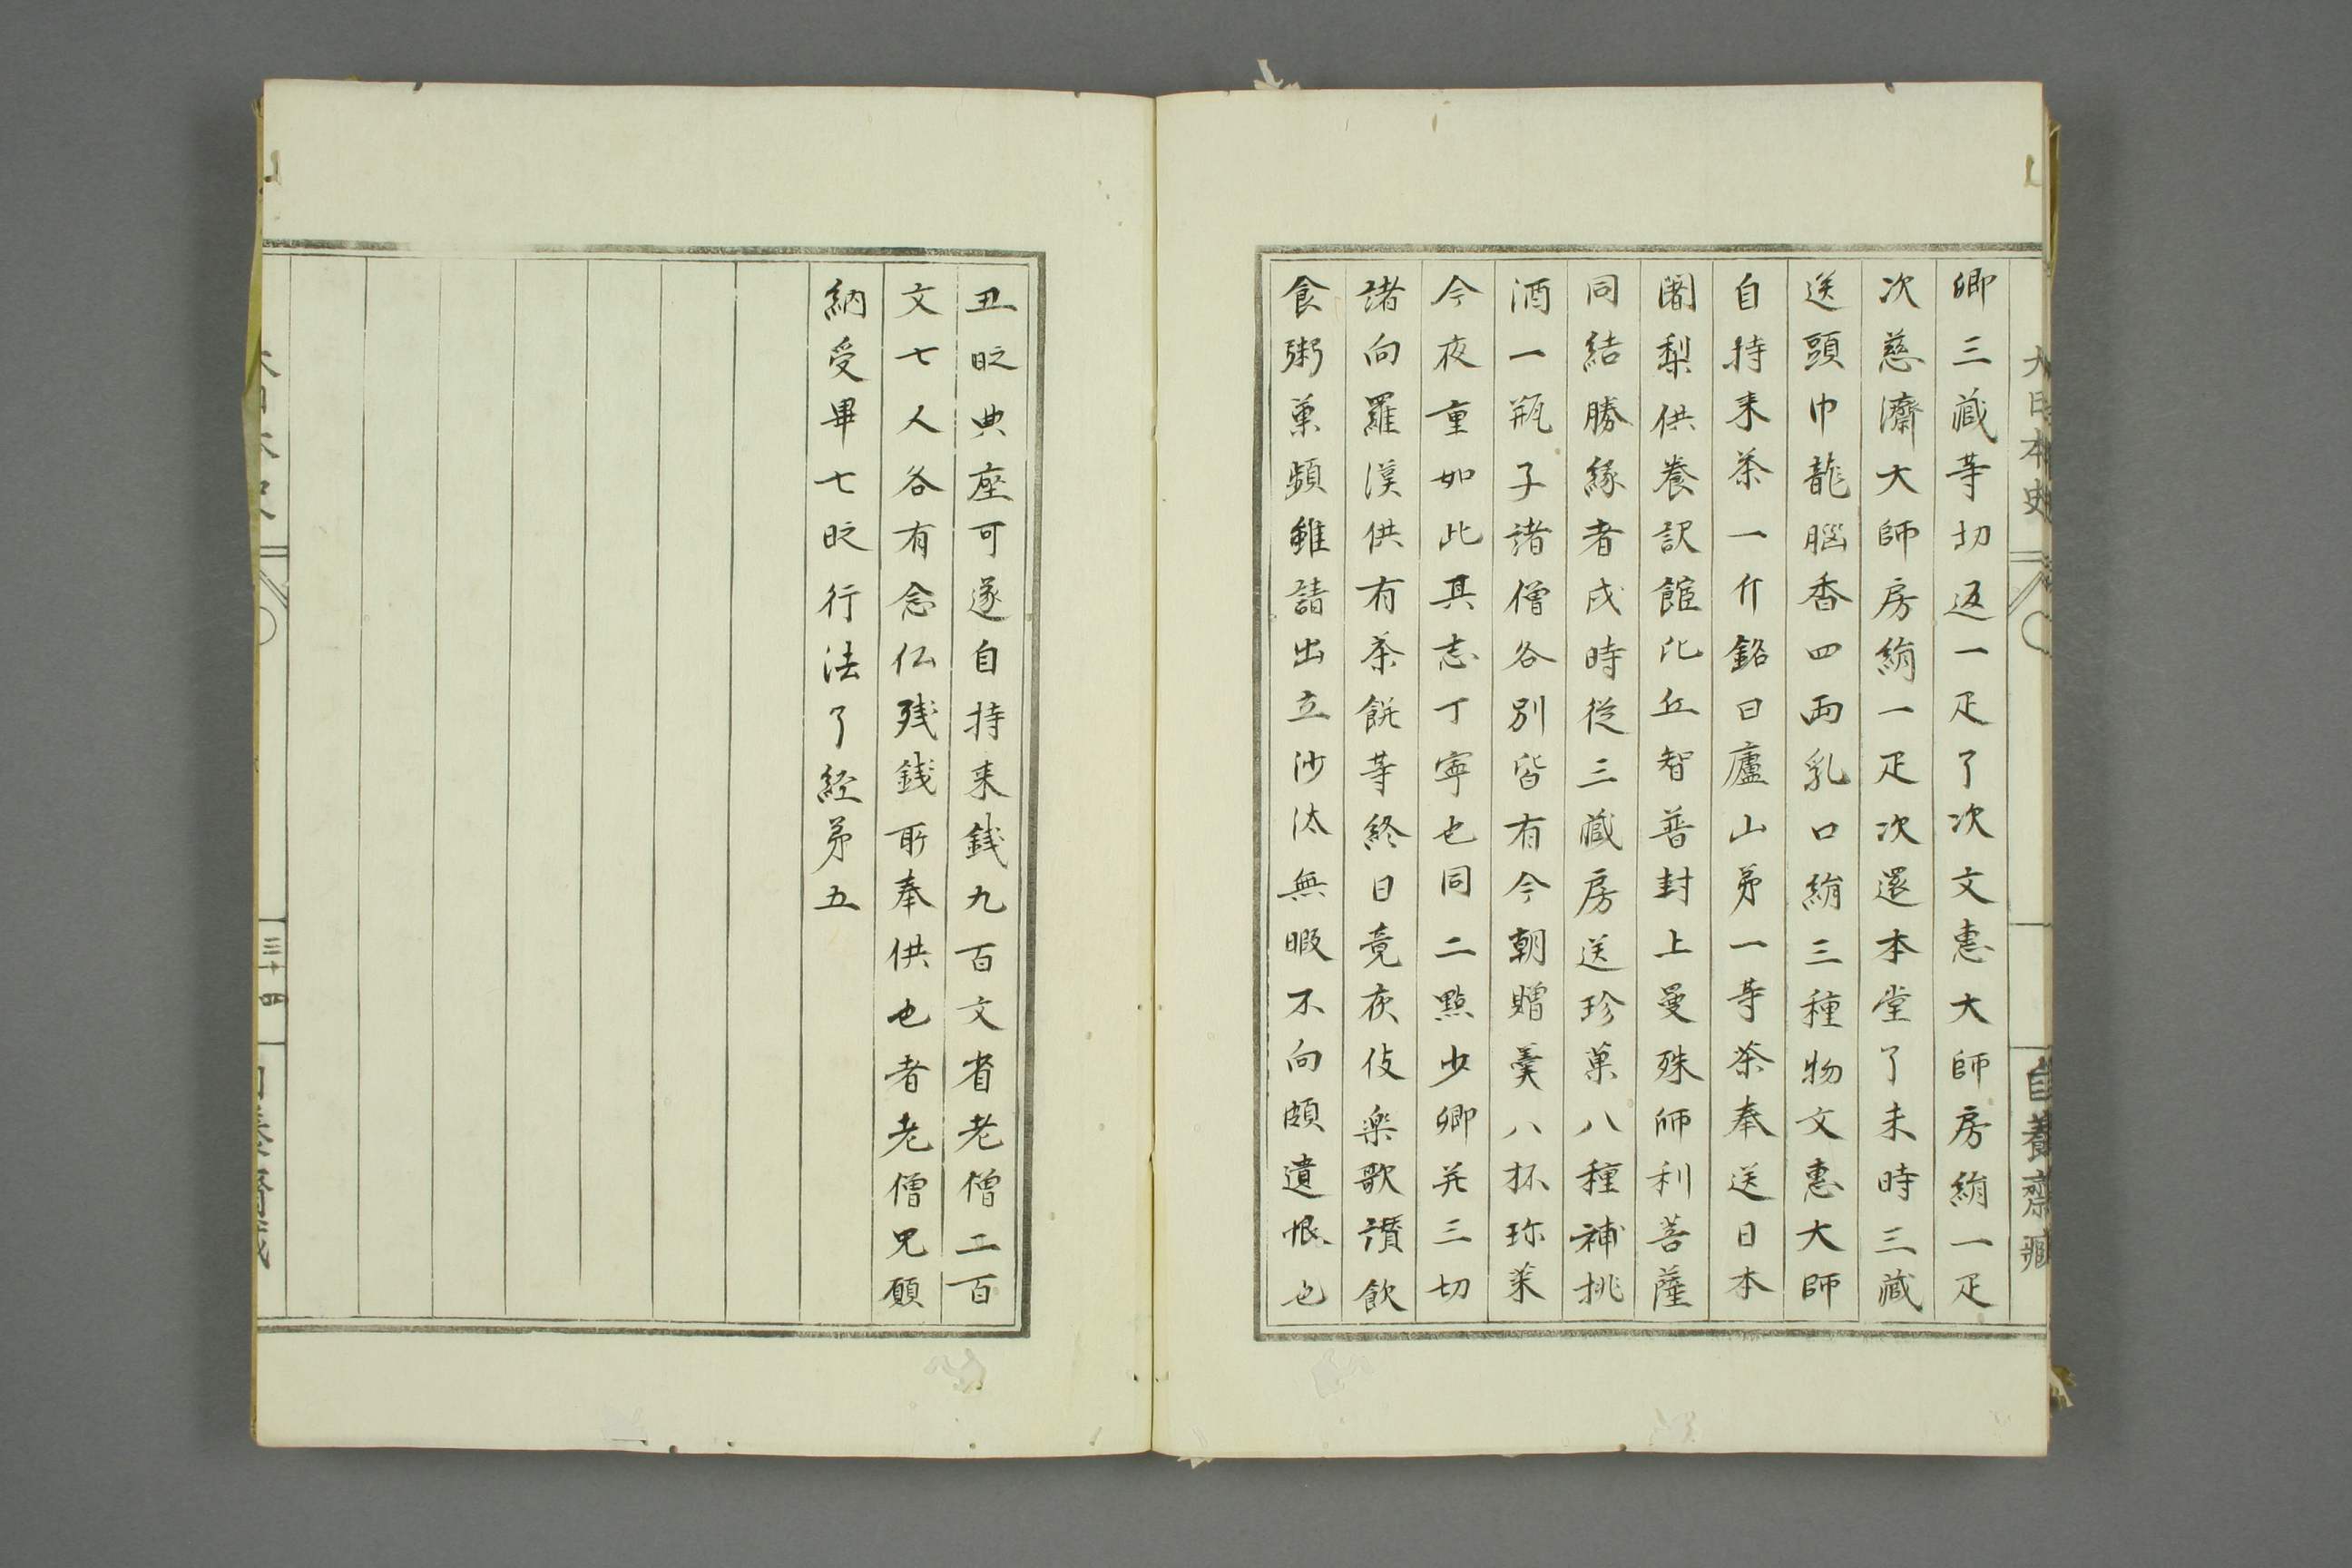 大日本史
自養齋藏
卿三藏等切返一疋了次文惠大師房絹一疋
次慈濟大師房絹一疋次還本堂了未時三藏
送頭巾龍腦香四両乳口絹三種物文惠大師
自持来茶一介銘曰廬山第一等茶奉送日本
闍梨供養訳館比丘智普封上曼殊師利菩薩
同結勝緣者戌時從三藏房送珍菓八種補桃
酒一瓶子諸僧各別皆有今朝贈羹八抔珎菜
今夜重如此其志丁寧也同二點少卿并三切
諸向羅漢供有茶餅等終日竟夜伎楽歌讃飲
食粥菓頻雖請出立沙汰無暇不向頗遺恨也
丑眨典座可遂自持来銭九百文省老僧二百
文七人各有念仏残銭所奉供也者老僧兄願
納受畢七眨行法了経第五
三十四